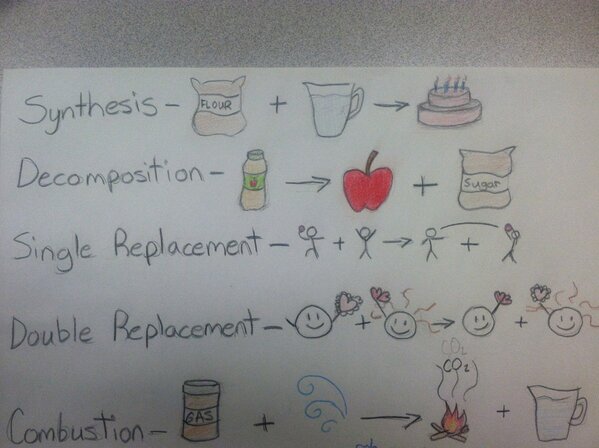 Synthesis - FLOUR + →
Decomposition - → + Sugar
Single Replacement - + → +
Double Replacement - + → +
CO2
CO2
Combustion - GAS + → +